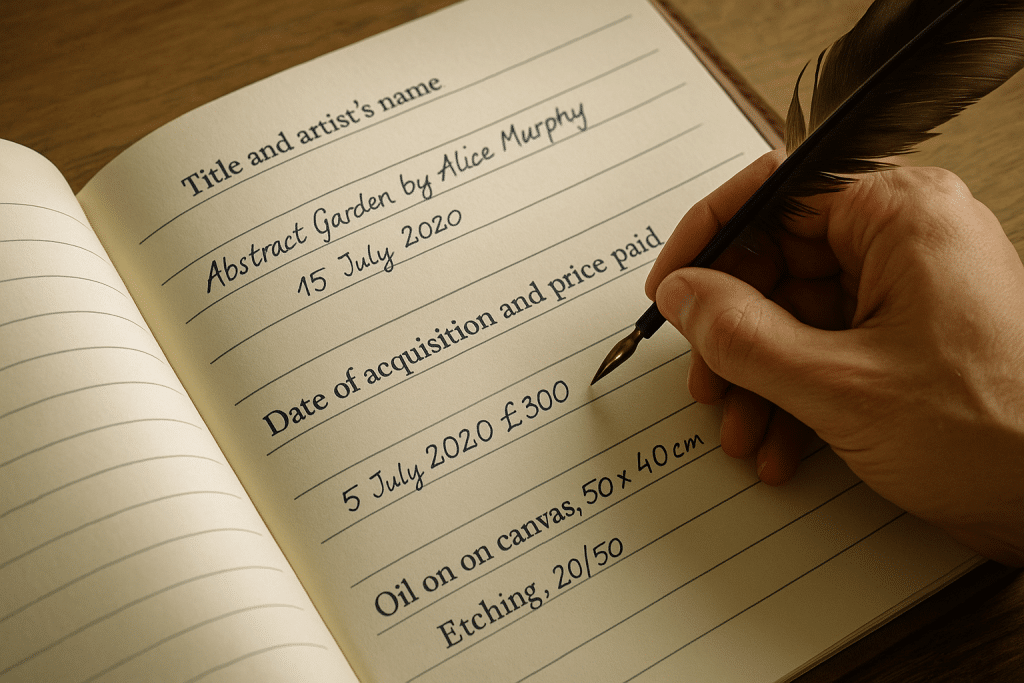 Title and artist's name
Abstract Garden by Alice Murphy
15 July 2020
Date of acquisition and price paid
5 July 2020 £300
Oil on on canvas, 50 x 40 cm
Etching, 20/50